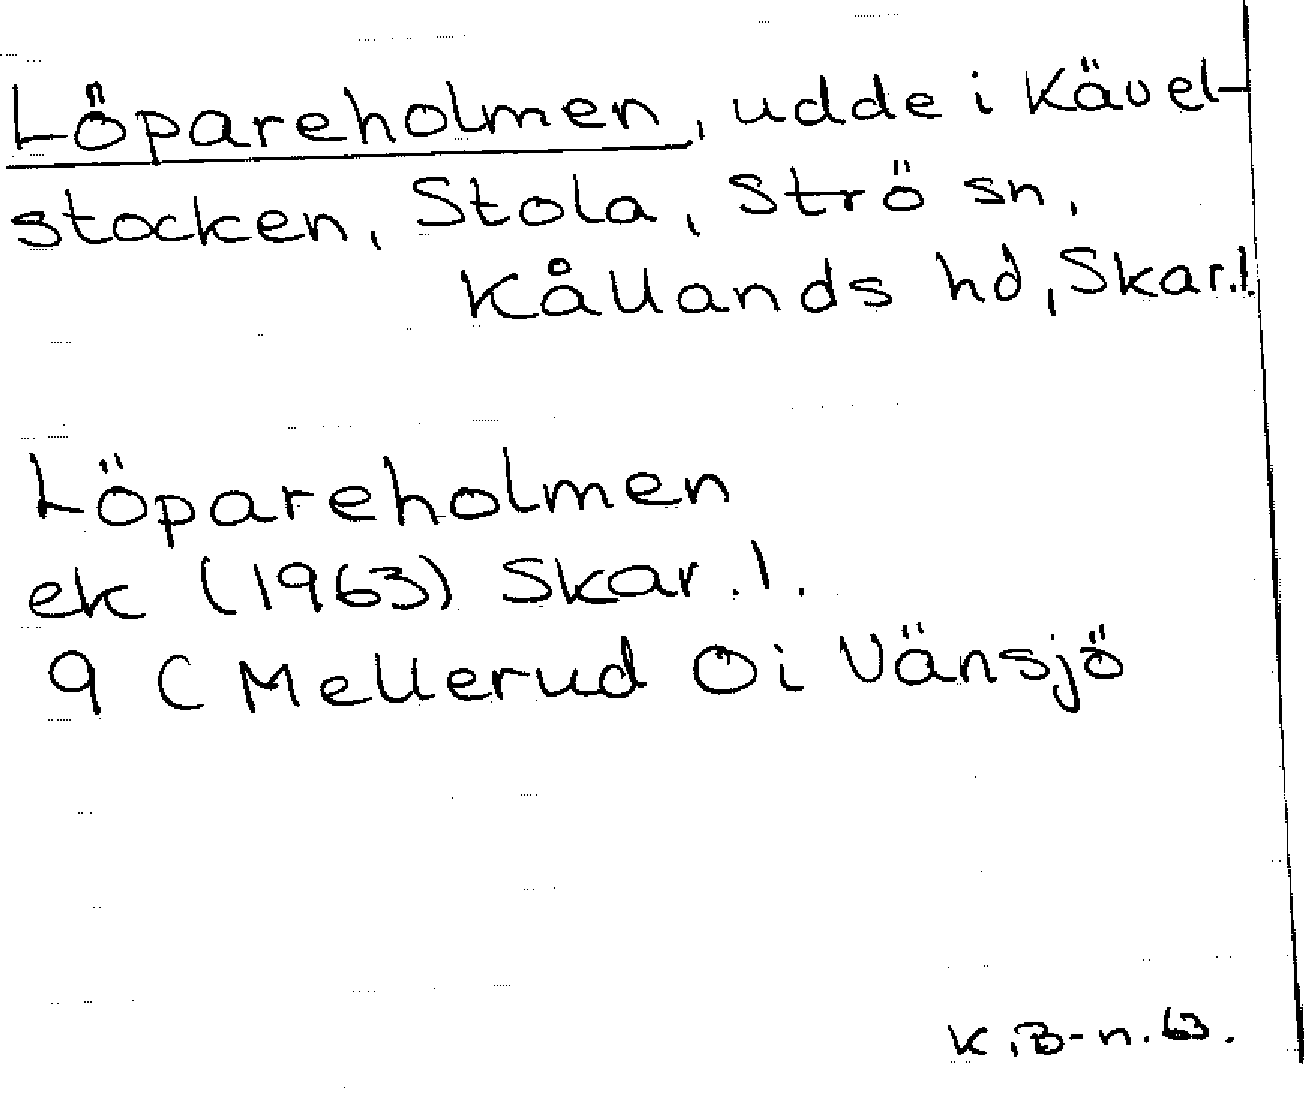 Löpareholmen, udde i Kävel-
stocken, Stola, Strö sn,
Kållands hd, Skar.l.
Löpareholmen
ek (1963) Skar.l.
9 C Mellerud Ö i Vänsjö
K.B-n.63.